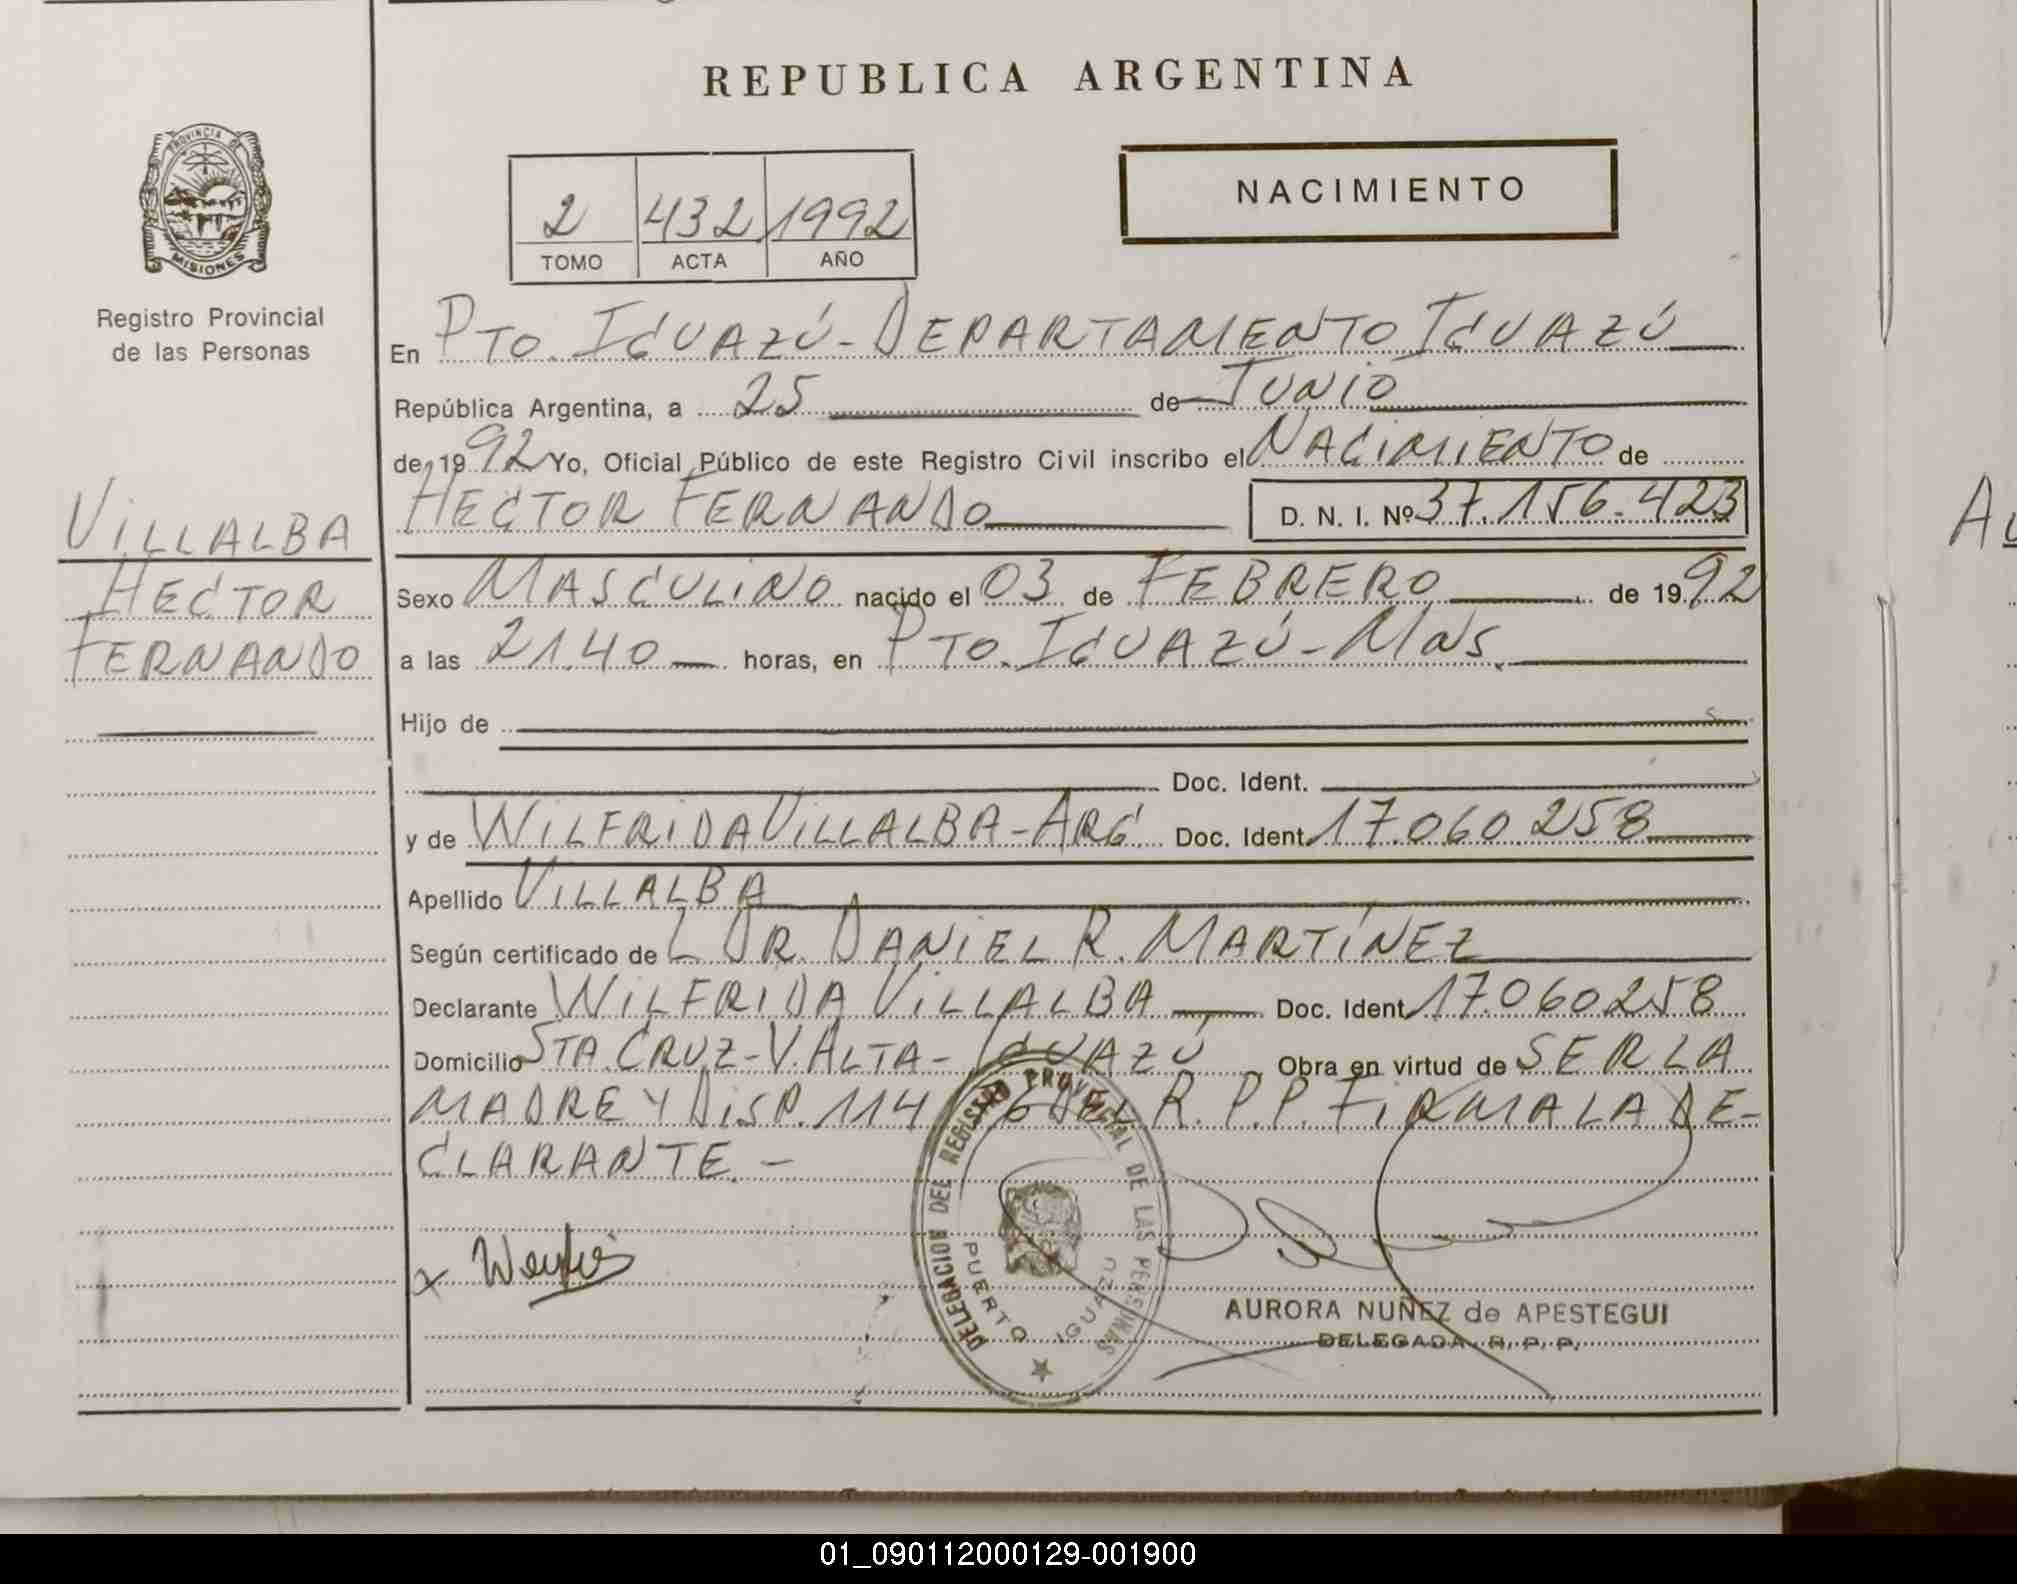 REPUBLICA ARGENTINA
PROVINCIA DE
MISIONES
Registro Provincial
de las Personas
NACIMIENTO
2 432 1992
TOMO ACTA AÑO
En PTO. IGUAZÚ - DEPARTAMENTO IGUAZÚ
República Argentina, a 25 de JUNIO
de 1992 Yo, Oficial Público de este Registro Civil inscribo el NACIMIENTO de
HECTOR FERNANDO D. N. I. Nº 37.156.423
VILLALBA
HECTOR
FERNANDO
Sexo MASCULINO nacido el 03 de FEBRERO de 1992
a las 21.40 horas, en PTO. IGUAZÚ - MNS.
Hijo de
Doc. Ident.
y de WILFRIDA VILLALBA - ARG. Doc. Ident. 17.060.258
Apellido VILLALBA
Según certificado de L DR. DANIEL R. MARTÍNEZ
Declarante WILFRIDA VILLALBA Doc. Ident. 17.060258
Domicilio STA. CRUZ - V. ALTA - IGUAZÚ Obra en virtud de SER LA
MADRE Y DISP. 114/76 DEL R.P.P. FIRMA LA DE-
CLARANTE. -
x
DELEGACION DEL REGISTRO PROVINCIAL DE LAS PERSONAS
PUERTO IGUAZU
AURORA NUÑEZ de APESTEGUI
DELEGADA R. P. P.
01_090112000129-001900